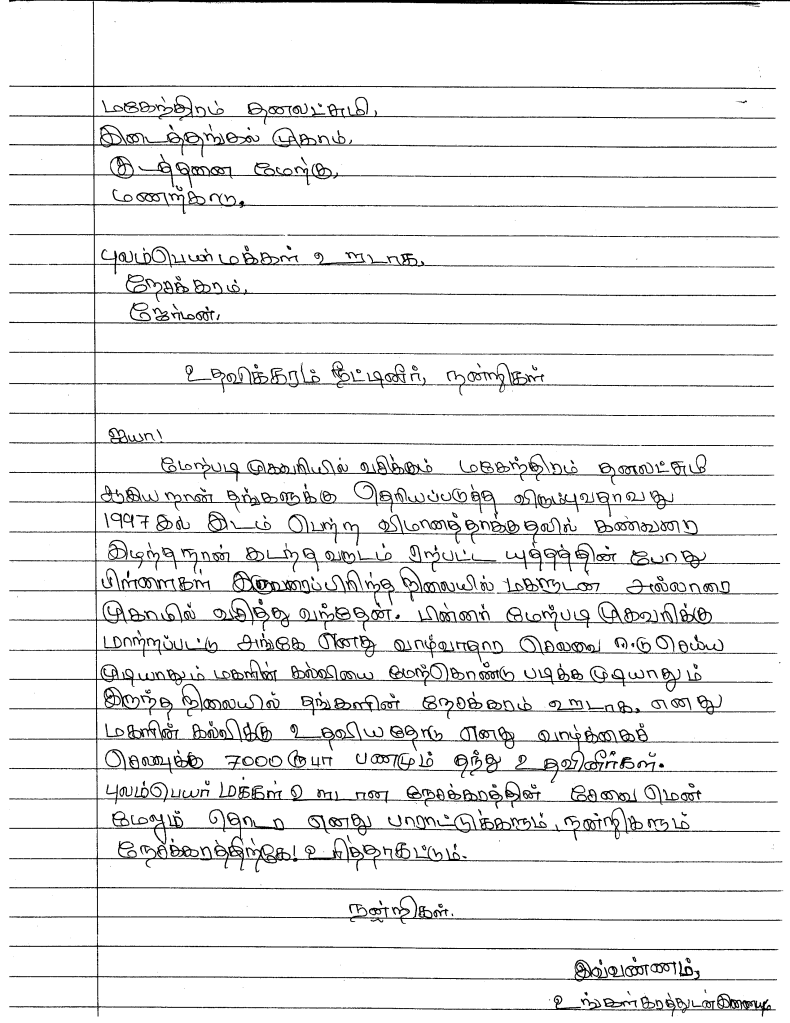 மகேந்திரம் தனலட்சுமி,
இடைத்தங்கல் முகாம்,
கட்த்தனை மேற்கு,
மணற்காடு.
புலம்பெயர் மக்கள் உறடாக,
நேசக்கரம்,
ஜேர்மன்,
உதவிக்கரம் நீட்டினீர், நன்றிகள்
ஐயா!
மேற்படி முகவரியில் வசிக்கும் மகேந்திரம் தனலட்சுமி
ஆகிய நான் தங்களுக்கு தெரியப்படுத்த விரும்புவதாவது
1997 இல் இடம் பெற்ற விமானத்தாக்குதலில் கணவரை
இழந்த நான் கடந்த வருடம் ஏற்பட்ட யுத்தத்தின் போது
பிள்ளைகள் இருவரைப்பிரிந்த நிலையில் மகளுடன் அல்லாரை
முகாமில் வசித்து வந்தேன். பின்னர் மேற்படி முகவரிக்கு
மாற்றப்பட்டு அங்கே எனது வாழ்வாதார செலவை ஈடு செய்ய
முடியாதும் மகளின் கல்வியை மேற்கொண்டு படிக்க முடியாதும்
இருந்த நிலையில் தங்களின் நேசக்கரம் உறடாக, எனது
மகளின் கல்விக்கு உதவியதோடு எனது வாழ்க்கைச்
செலவுக்கு 7000 ரூபா பணமும் தந்து உதவினீர்கள்.
புலம்பெயர் மக்கள் உறடான நேசக்கரத்தின் சேவை மென்
மேலும் தொடர எனது பாராட்டுக்களும், நன்றிகளும்
நேசக்கரத்திற்கே! உரித்தாகட்டும்.
நன்றிகள்.
இவ்வண்ணம்,
உங்கள் கரத்துடன்